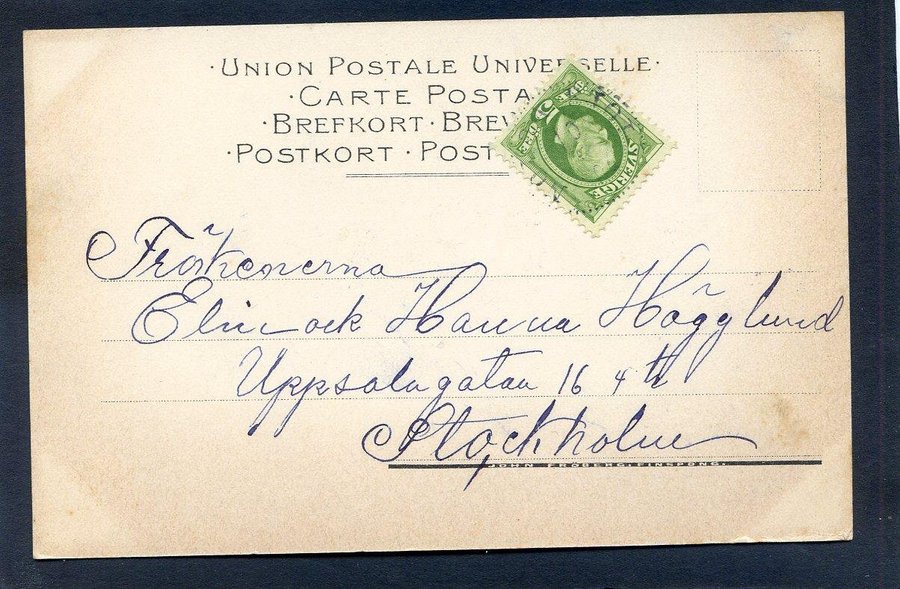 ·UNION POSTALE UNIVERSELLE·
·CARTE POSTA
·BREFKORT·BREV
·POSTKORT·POST
SVERIGE
5
Frökenerna
Elin ock Hanna Hägglund
Uppsalagatan 16 4 tr
Stockholm
JOHN FRÖBERG, FINSPONG.